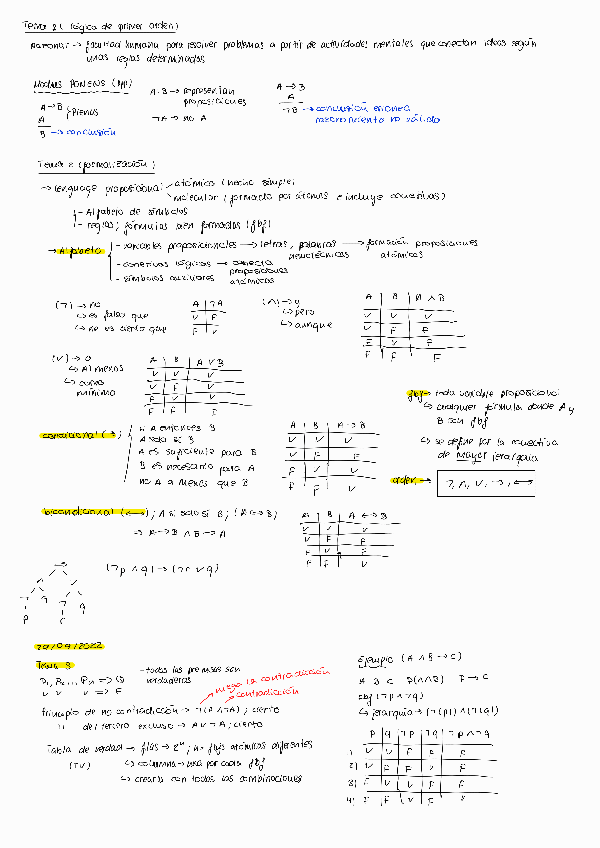 Tema 2 ( lógica de primer orden)
Razonar → facultad humana para resolver problemas a partir de actividades mentales que conectan ideas según
unas reglas determinadas
MODUS PONENS (MP)
A → B
A
B → conclusión
A, B → representan
proposiciones
¬A → no A
A → B
A
¬B → conclusión errónea
razonamiento no válido
Tema 2 (formalización)
→ lenguage proposicional
atómico (hecho simple)
molecular (formado por átomos e incluye conectivas)
- Alfabeto de símbolos
- reglas; fórmulas bien formadas (fbf)
→ Alfabeto
- variables proposicionales → letras, palabras → formación proposiciones
atómicas
- conectivas lógicas → conecta
proposiciones
atómicas
- símbolos auxiliares
(¬) → no
↳ es falso que
↳ no es cierto que
A | ¬A
V | F
F | V
(∧) → y
↳ pero
↳ aunque
A | B | A ∧ B
V | V | V
V | F | F
F | V | F
F | F | F
(∨) → o
↳ Al menos
↳ como
mínimo
A | B | A ∨ B
V | V | V
V | F | V
F | V | V
F | F | F
fbf → toda variable proposicional
↳ cualquier fórmula donde A y
B son fbf
↳ se define por la conectiva
de mayor jerarquía
orden → ¬, ∧, ∨, →, ↔
condicional (→)
si A entonces B
A solo si B
A es suficiente para B
B es necesario para A
no A a menos que B
A | B | A → B
V | V | V
V | F | F
F | V | V
F | F | V
bicondicional (↔) ; A si solo si B ; (A ↔ B)
→ A → B ∧ B → A
A | B | A ↔ B
V | V | V
V | F | F
F | V | F
F | F | V
(¬p ∧ q) → (¬r ∨ q)
29/09/2022
Tema 3
P1, P2, ... Pn => Q
V V V => F
- todas las premisas son
verdaderas
niego la contradicción
contradicción
Principio de no contradicción → ¬(A ∧ ¬A) ; cierto
" del tercero excluso → A ∨ ¬A ; cierto
Tabla de verdad → filas → 2ⁿ ; nº fbfs atómicas diferentes
(TV) ↳ columna → una por cada fbf
↳ crearla con todas las combinaciones
Ejemplo (A ∧ B → C)
A B C
fbf (¬p ∧ ¬q)
↳ jerarquía → (¬(p)) ∧ (¬(q))
p | q | ¬p | ¬q | ¬p ∧ ¬q
1) V | V | F | F | F
2) V | F | F | V | F
3) F | V | V | F | F
4)